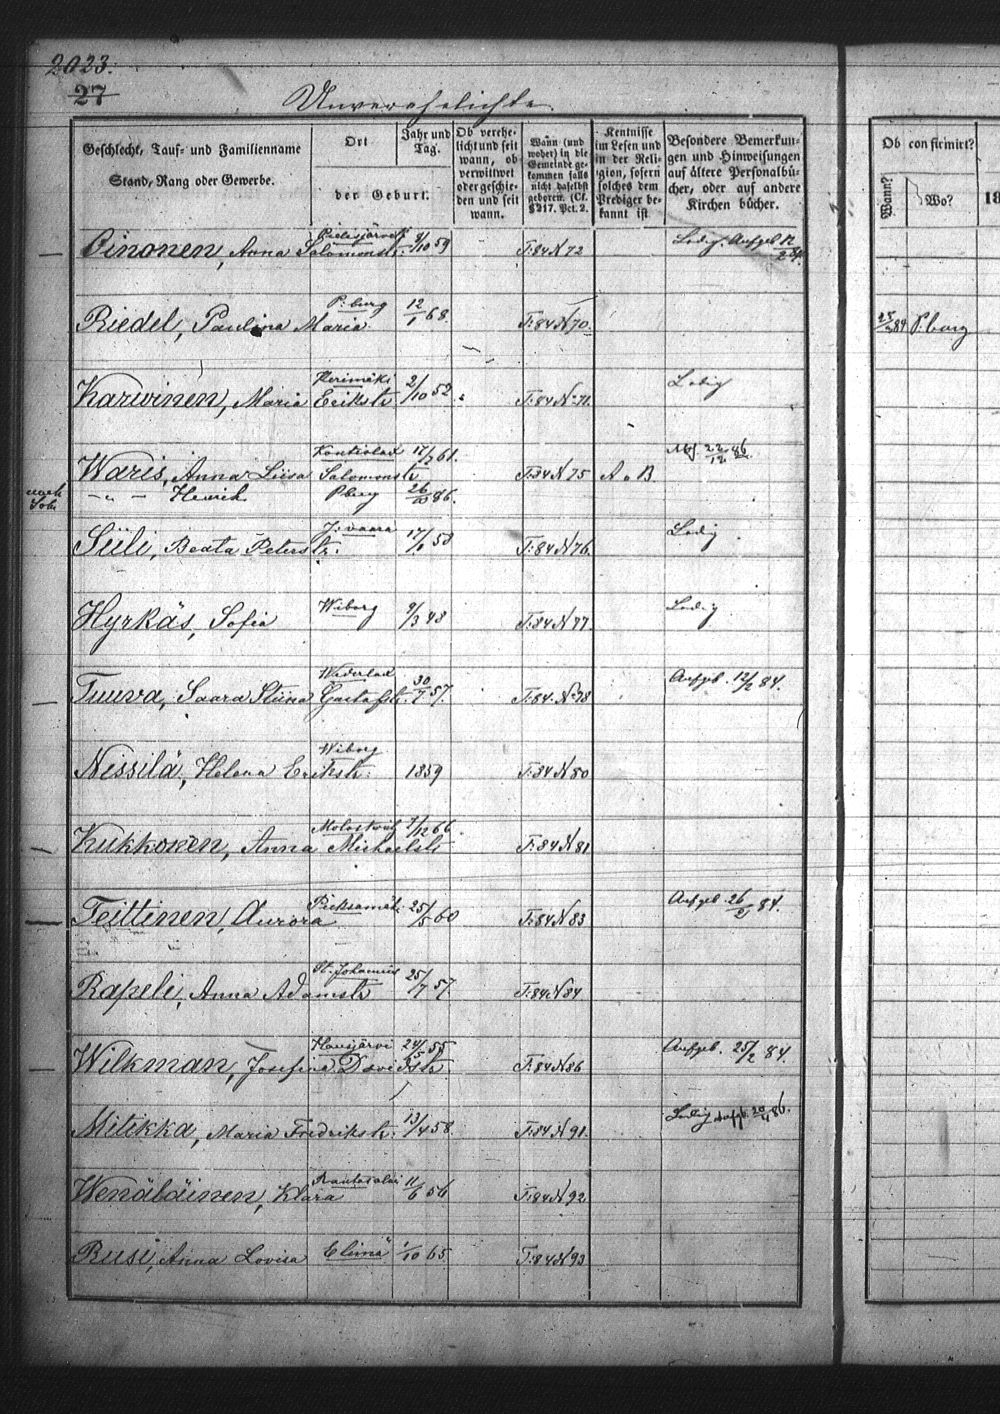 2023.
27
Unverehelichte
Geschlecht, Tauf- und Familienname
Stand, Rang oder Gewerbe.
Ort
der Geburt.
Jahr und
Tag.
Ob verehe-
licht und seit
wann, ob
verwittwet
oder geschie-
den und seit
wann.
Wann (und
woher) in die
Gemeinde ge-
kommen falls
nicht daselbst
geboren. (Cf.
§ 217. Pct. 2.
Kentnisse
im Lesen und
in der Reli-
gion, sofern
solches dem
Prediger be-
kannt ist
Besondere Bemerkun-
gen und Hinweisungen
auf ältere Personalbü-
cher, oder auf andere
Kirchen bücher.
Ob confirmirt?
Wann?
Wo?
18
Pielisjärvi
Oinonen, Anna Salomonst: 9/10 59 T:84 N 72 Ledig. Aufgeb 12/2 84.
P:burg
Riedel, Paulina Maria 12/1 68. T:84 N 70. 25/3 84 P.burg
Kerimäki
Karwinen, Maria Erikstr 2/10 52 T:84 N: 71. Ledig
Kontiolax
Waris, Anna Liisa Salomonstr 17/7 61. T:84 N 75 A. B. Abf. 22/12 86.
nach
— " — Henrik Pburg 26/10 86.
J:vaara
Siili, Beata Peterstr. T:84 N 76. Ledig
Hyrkäs, Sofia Wiborg 9/3 43 T:84 N 77. Ledig
Wederlax
Tuuva, Saara Stiina Gustafstr. 30/7 57. T:84. N: 78 Aufgeb. 12/2 84.
Wiborg
Nissilä, Helena Erikstr: 1859 T:84 N 80
Kukkonen, Anna Michaelstr 7/12 66. T:84 N 81
Pieksamäk:
Teittinen, Aurora 25/5 60 T:84 N 83 Aufgeb. 26/2 84.
St. Johannis
Rapeli, Anna Adamstr 25/7 57. T:84 N 84
Hausjärvi
Wilkman, Josefina Davidstr 24/5 55 T:84 N 86 Aufgeb. 25/2 84.
Mitikka, Maria Fredrikstr: 13/4 58. T:84 N 91. Ledig Aufgb. 20/4 86.
Rantasalmi
Wenäläinen, Klara 11/6 56 T:84 N 92
Rusi, Anna Lovisa Elimä 1/10 65. T:84 N 93